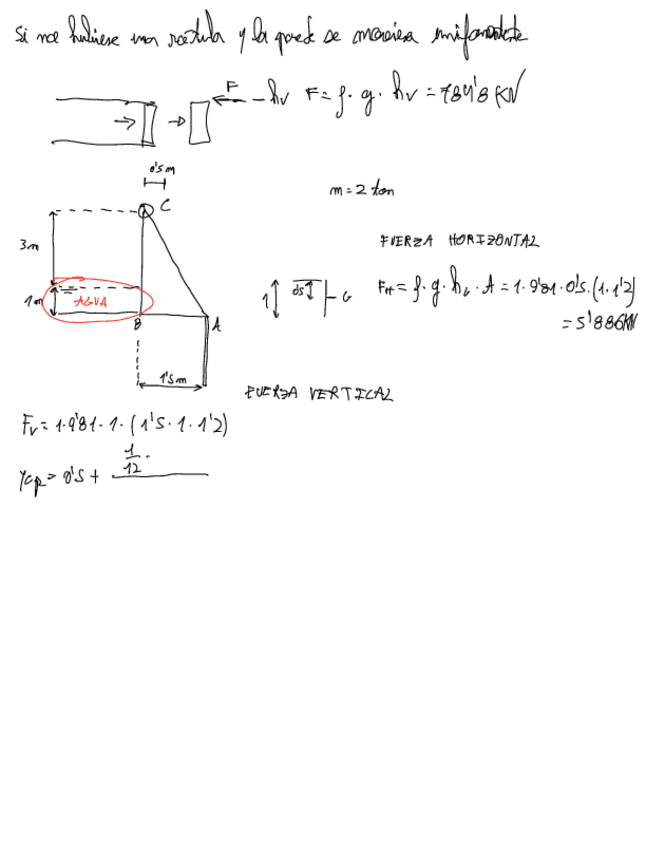 Si no hubiese una rótula y la pared se moviera uniformemente
F
hv F = ρ · g · hv = 784'8 KN
0'5 m
C
m = 2 ton
3m
FUERZA HORIZONTAL
1m
AGUA
1
0'5
G
FH = ρ · g · hG · A = 1 · 9'81 · 0'5 · (1 · 1'2)
= 5'886 KN
B
A
1'5 m
FUERZA VERTICAL
Fv = 1 · 9'81 · 1 · (1'5 · 1 · 1'2)
ycp = 0'5 + 1/12 ·